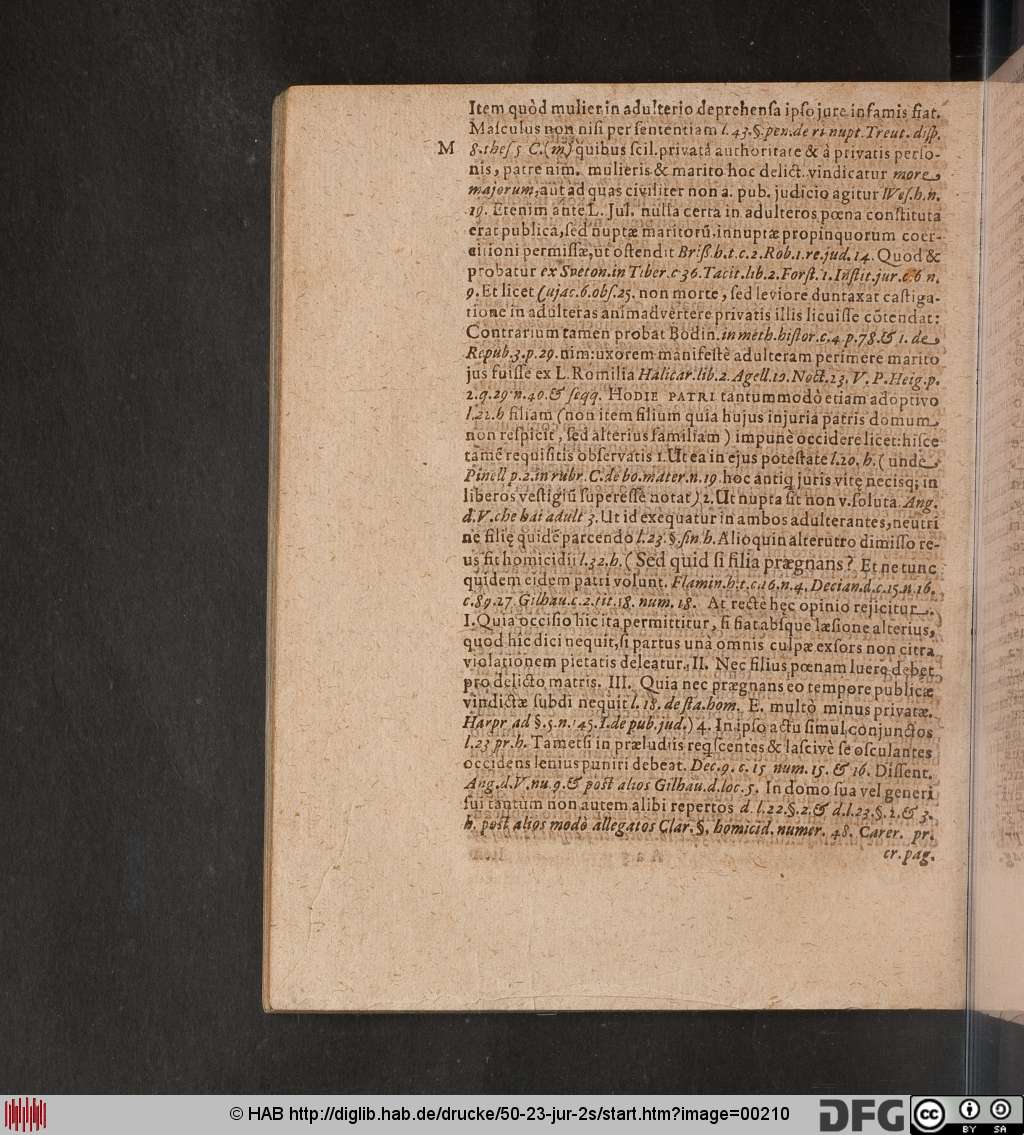 Item quòd mulier in adulterio deprehensa ipso jure infamis fiat.
Masculus non nisi per sententiam l. 43. §. pen. de ri nupt. Treut. disp.
M 8. thes 5 C. (m) quibus scil. privatâ authoritate & à privatis perso-
nis, patre nim. mulieris & marito hoc delict. vindicatur more
majorum, aut ad quas civiliter non a. pub. judicio agitur Wes. h. n.
19. Etenim ante L. Jul. nulla certa in adulteros pœna constituta
erat publica, sed nuptæ maritorũ. innuptæ propinquorum coer-
citioni permissæ, ut ostendit Briß. h. t. c. 2. Rob. 1. re. jud. 14. Quod &
probatur ex Sveton. in Tiber. c 36. Tacit. lib. 2. Forst. 1. Instit. jur. c. 6 n.
9. Et licet Cujac. 6. obs. 25. non morte, sed leviore duntaxat castiga-
tione in adulteras animadvertere privatis illis licuisse cõtendat:
Contrarium tamen probat Bodin. in meth. histor. c. 4. p. 78. & 1. de
Repub. 3. p. 29. nim: uxorem manifestè adulteram perimere marito
jus fuisse ex L. Romilia Halicar. lib. 2. Agell. 10. Noct. 23. V. P. Heig. p.
2. q. 29 n. 40. & seqq. HODIE PATRI tantummodò etiam adoptivo
l. 22. h filiam (non item filium quia hujus injuria patris domum
non respicit, sed alterius familiam) impunè occidere licet: hisce
tamẽ requisitis observatis 1. Ut ea in ejus potestate l. 20. h. (unde
Pinell p. 2. in rubr. C. de bo. mater. n. 19. hoc antiq juris vitę necisq; in
liberos vestigiũ superesse notat) 2. Ut nupta sit non v. soluta Ang.
d. V. che hai adult 3. Ut id exequatur in ambos adulterantes, neutri
ne filię quidẽ parcendo l. 23. §. fin h. Alioquin alterutro dimisso re-
us fit homicidii l. 32. h. (Sed quid si filia prægnans? Et ne tunc
quidem eidem patri volunt. Flamin. h. t. c. 16. n. 4. Decian. d. c. 15. n. 16.
c. 89. 27 Gilhau. c. 2. tit. 18. num. 18. At rectè hęc opinio rejicitur.
I. Quia occisio hic ita permittitur, si fiat absque læsione alterius,
quod hic dici nequit, si partus unà omnis culpæ exsors non citra
violationem pietatis deleatur. II. Nec filius pœnam luere debet
pro delicto matris. III. Quia nec prægnans eo tempore publicæ
vindictæ subdi nequit l. 18. de sta. hom. E. multò minus privatæ.
Harpr ad §. 5. n. 45. I. de pub. jud.) 4. In ipso actu simul conjunctos
l. 23 pr. h. Tametsi in præludiis reqscentes & lascivè se osculantes
occidens lenius puniri debeat. Dec. 9. c. 15 num. 15. & 16. Dissent.
Ang. d. V. nu. 9. & post alios Gilhau. d. loc. 5. In domo sua vel generi
sui tantùm non autem alibi repertos d. l. 22. §. 2. & d. l. 23. §. 2. & 3.
h. post alios modò allegatos Clar. §. homicid. numer. 48. Carer. pr.
cr. pag.
© HAB http://diglib.hab.de/drucke/50-23-jur-2s/start.htm?image=00210
DFG
cc BY SA